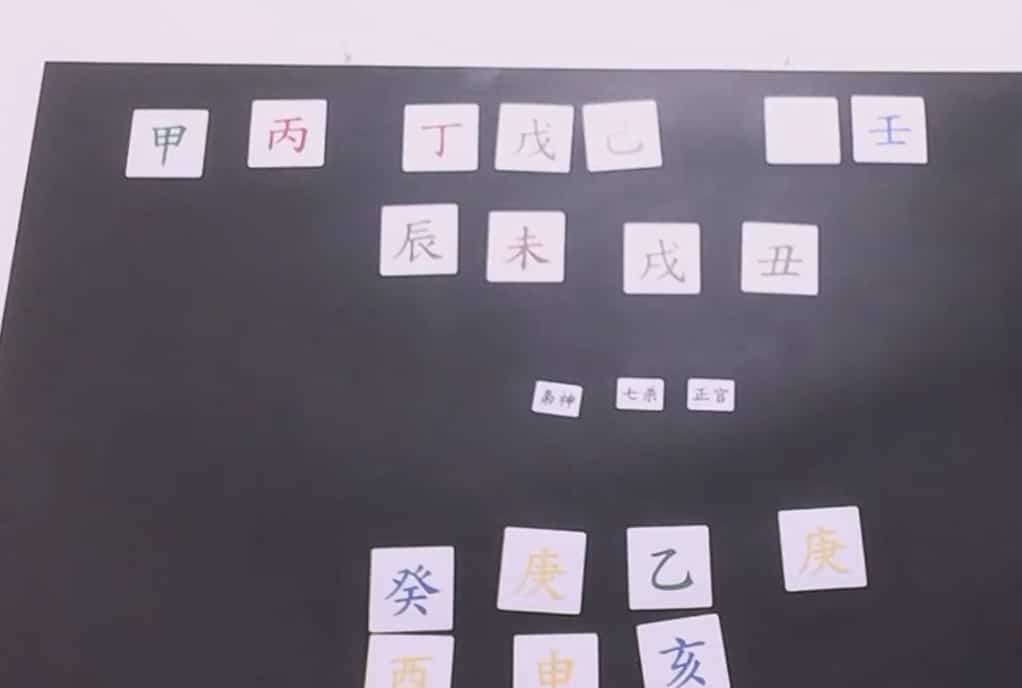 甲 丙 丁 戊 己 壬
辰 未 戌 丑
枭神 七杀 正官
癸 庚 乙 庚
酉 申 亥